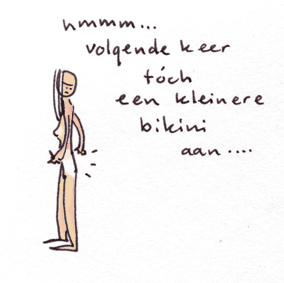 hmmm...
volgende keer
tóch
een kleinere
bikini
aan....